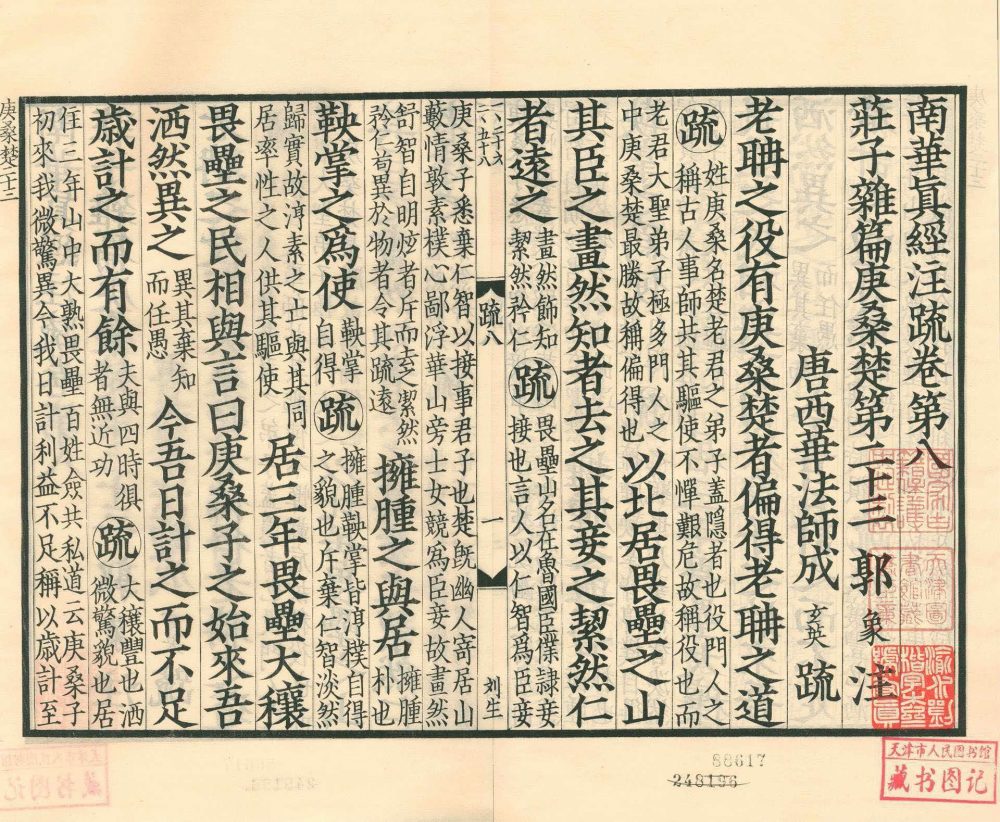 南華眞經注疏卷第八
莊子雜篇庚桑楚第二十三 郭象注
唐西華法師成 玄英 疏
老聃之役有庚桑楚者偏得老聃之道
疏 姓庚桑名楚老君之弟子蓋隱者也役門人之
稱古人事師共其驅使不憚艱危故稱役也而
老君大聖弟子極多門人之
中庚桑楚最勝故稱偏得也 以北居畏壘之山
其臣之畫然知者去之其妾之絜然仁
者遠之 畫然飾知
絜然矜仁 疏 畏壘山名在魯國臣僕隸妾
接也言人以仁智爲臣妾
疏八
一
刘生
庚桑子悉棄仁智以接事君子也楚旣幽人寄居山
藪情敦素樸心鄙浮華山旁士女競爲臣妾故畫然
舒智自明炫者斥而去之潔然
矜仁苟異於物者令其疏遠 擁腫之與居 擁腫
朴也
鞅掌之爲使 鞅掌
自得 疏 擁腫鞅掌皆淳樸自得
之貌也斥棄仁智淡然
歸實故淳素之士與其同
居率性之人供其驅使 居三年畏壘大穰
畏壘之民相與言曰庚桑子之始來吾
洒然異之 異其棄知
而任愚 今吾日計之而不足
歲計之而有餘 夫與四時俱
者無近功 疏 大穰豐也洒
微驚貌也居
住三年山中大熟畏壘百姓僉共私道云庚桑子
初來我微驚異今我日計利益不足稱以歲計至
庚桑楚二十三
88617
248196
天津市人民图书馆
藏书图记